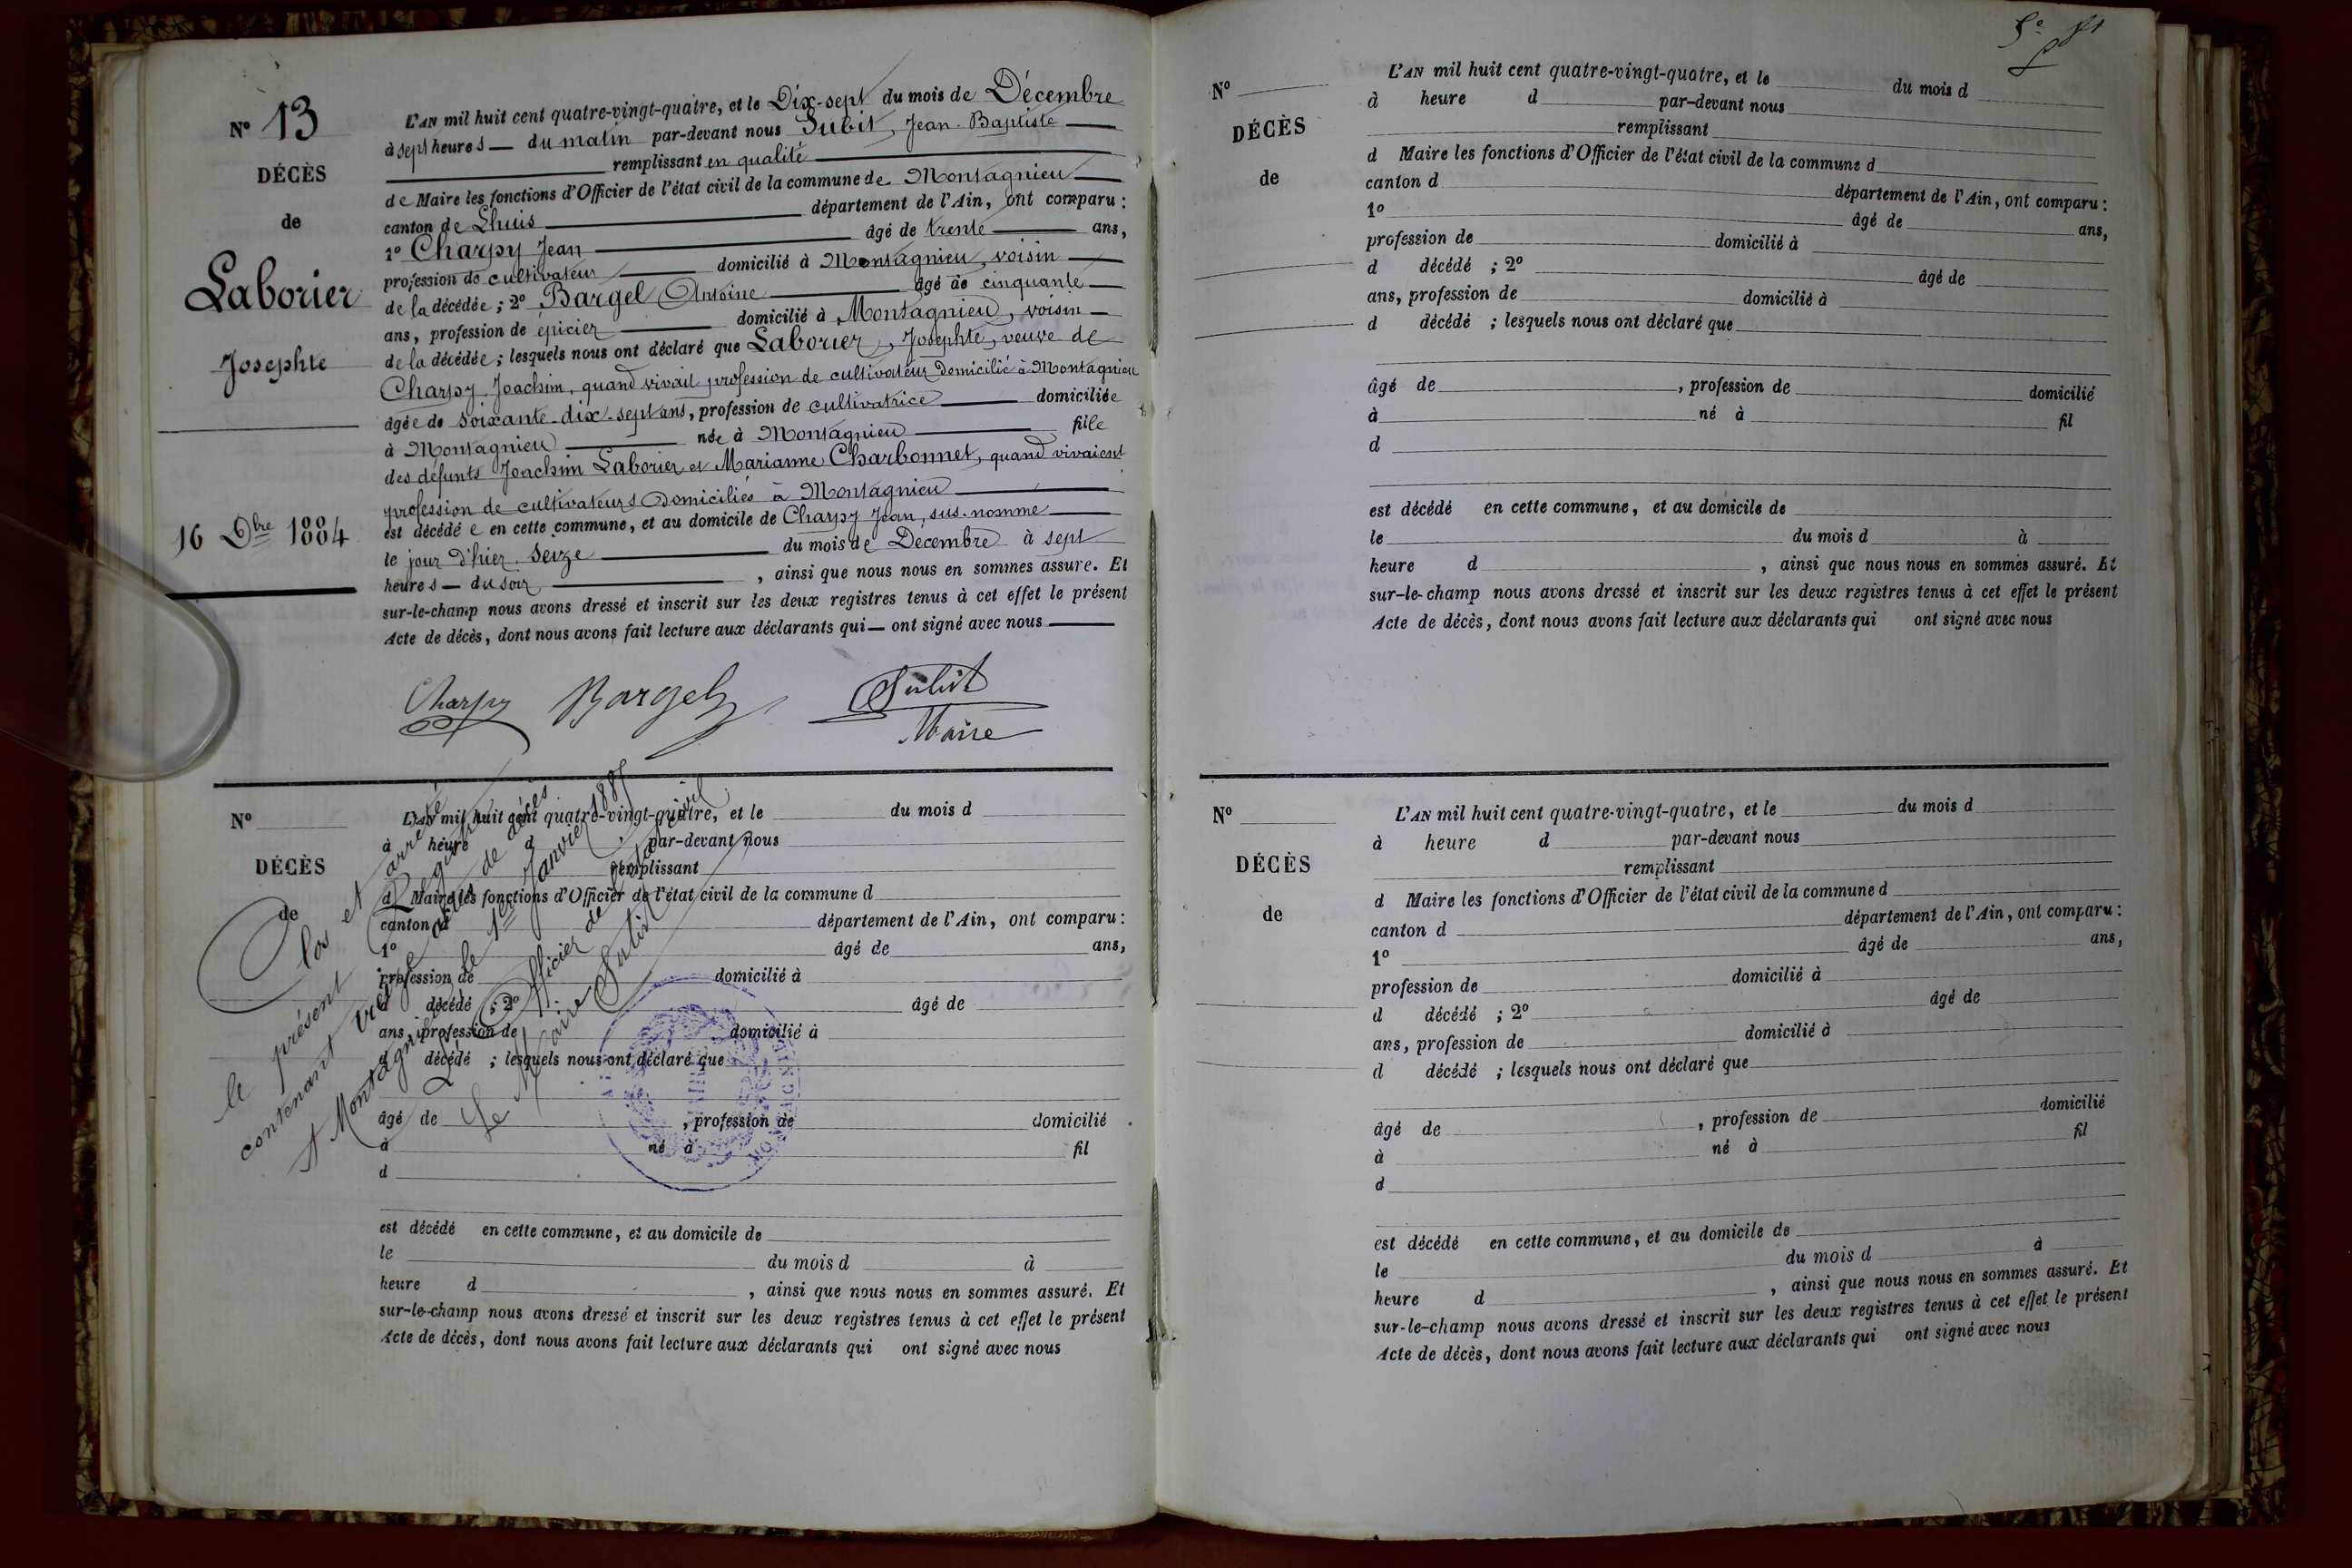 N° 13
DÉCÈS
de
Laborier
Josephte
16 Dbre 1884
L'AN mil huit cent quatre-vingt-quatre, et le Dix-sept du mois de Décembre
à sept heures — du matin par-devant nous Subit, Jean-Baptiste
remplissant en qualité
de Maire les fonctions d'Officier de l'état civil de la commune de Montagnieu
canton de Lhuis département de l'Ain, ont comparu :
1° Charpy Jean âgé de trente ans,
profession de cultivateur domicilié à Montagnieu, voisin
de la décédée ; 2° Bargel Antoine âgé de cinquante
ans, profession de épicier domicilié à Montagnieu, voisin
de la décédée ; lesquels nous ont déclaré que Laborier, Josephte, veuve de
Charpy Joachim, quand vivait profession de cultivateur domicilié à Montagnieu
âgée de soixante-dix-sept ans, profession de cultivatrice domiciliée
à Montagnieu née à Montagnieu fille
des défunts Joachim Laborier et Marianne Charbonnet, quand vivaient
profession de cultivateurs domiciliés à Montagnieu
est décédée en cette commune, et au domicile de Charpy Jean, sus-nommé
le jour d'hier seize du mois de Décembre à sept
heures — du soir , ainsi que nous nous en sommes assuré. Et
sur-le-champ nous avons dressé et inscrit sur les deux registres tenus à cet effet le présent
Acte de décès, dont nous avons fait lecture aux déclarants qui — ont signé avec nous
Charpy Bargel Subit
Maire
N°
DÉCÈS
de
L'AN mil huit cent quatre-vingt-quatre, et le du mois d
à heure d par-devant nous
remplissant
d Maire les fonctions d'Officier de l'état civil de la commune d
canton d département de l'Ain, ont comparu :
1° âgé de ans,
profession de domicilié à
d décédé ; 2° âgé de
ans, profession de domicilié à
d décédé ; lesquels nous ont déclaré que
âgé de , profession de domicilié
à né à fil
d
est décédé en cette commune, et au domicile de
le du mois d à
heure d , ainsi que nous nous en sommes assuré. Et
sur-le-champ nous avons dressé et inscrit sur les deux registres tenus à cet effet le présent
Acte de décès, dont nous avons fait lecture aux déclarants qui ont signé avec nous
Clos et arrêté
le présent Registre
contenant treize actes de décès
A Montagnieu le 1er Janvier 1885
L'Officier de l'état civil
Le Maire Subit
N°
DÉCÈS
de
L'AN mil huit cent quatre-vingt-quatre, et le du mois d
à heure d par-devant nous
remplissant
d Maire les fonctions d'Officier de l'état civil de la commune d
canton d département de l'Ain, ont comparu :
1° âgé de ans,
profession de domicilié à
d décédé ; 2° âgé de
ans, profession de domicilié à
d décédé ; lesquels nous ont déclaré que
âgé de , profession de domicilié
à né à fil
d
est décédé en cette commune, et au domicile de
le du mois d à
heure d , ainsi que nous nous en sommes assuré. Et
sur-le-champ nous avons dressé et inscrit sur les deux registres tenus à cet effet le présent
Acte de décès, dont nous avons fait lecture aux déclarants qui ont signé avec nous
N°
DÉCÈS
de
L'AN mil huit cent quatre-vingt-quatre, et le du mois d
à heure d par-devant nous
remplissant
d Maire les fonctions d'Officier de l'état civil de la commune d
canton d département de l'Ain, ont comparu :
1° âgé de ans,
profession de domicilié à
d décédé ; 2° âgé de
ans, profession de domicilié à
d décédé ; lesquels nous ont déclaré que
âgé de , profession de domicilié
à né à fil
d
est décédé en cette commune, et au domicile de
le du mois d à
heure d , ainsi que nous nous en sommes assuré. Et
sur-le-champ nous avons dressé et inscrit sur les deux registres tenus à cet effet le présent
Acte de décès, dont nous avons fait lecture aux déclarants qui ont signé avec nous